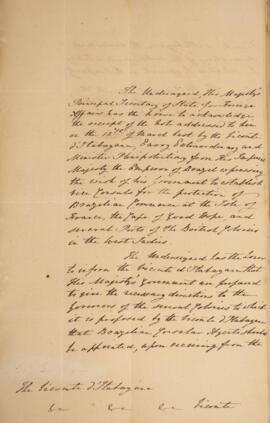 The Undersigned, His Majesty's
Principal Secretary of State for Foreign
Affairs has the honor to acknowledge
the receipt of the Note addressed to him
on the 12th of March last by the Viconte
d'Itabayana, Envoy Extraordinary and
Minister Plenipotentiary from His Imperial
Majesty the Emperor of Brazil expressing
the wish of his Government to establish
Vice Consuls for the protection of
Brazilian Commerce at the Isle of
France, the Cape of Good Hope, and
several Ports of the British Colonies
in the West Indies.
The Undersigned has the honor
to inform the Viconte d'Itabayana that
His Majesty's Government are prepared
to give the necessary directions to the
Governors of the several Colonies to which
it is proposed by the Viconte d'Itabayana
that Brazilian Consular Agents should
be appointed, upon receiving from the
The Viconte d'Itabayana
Viconte